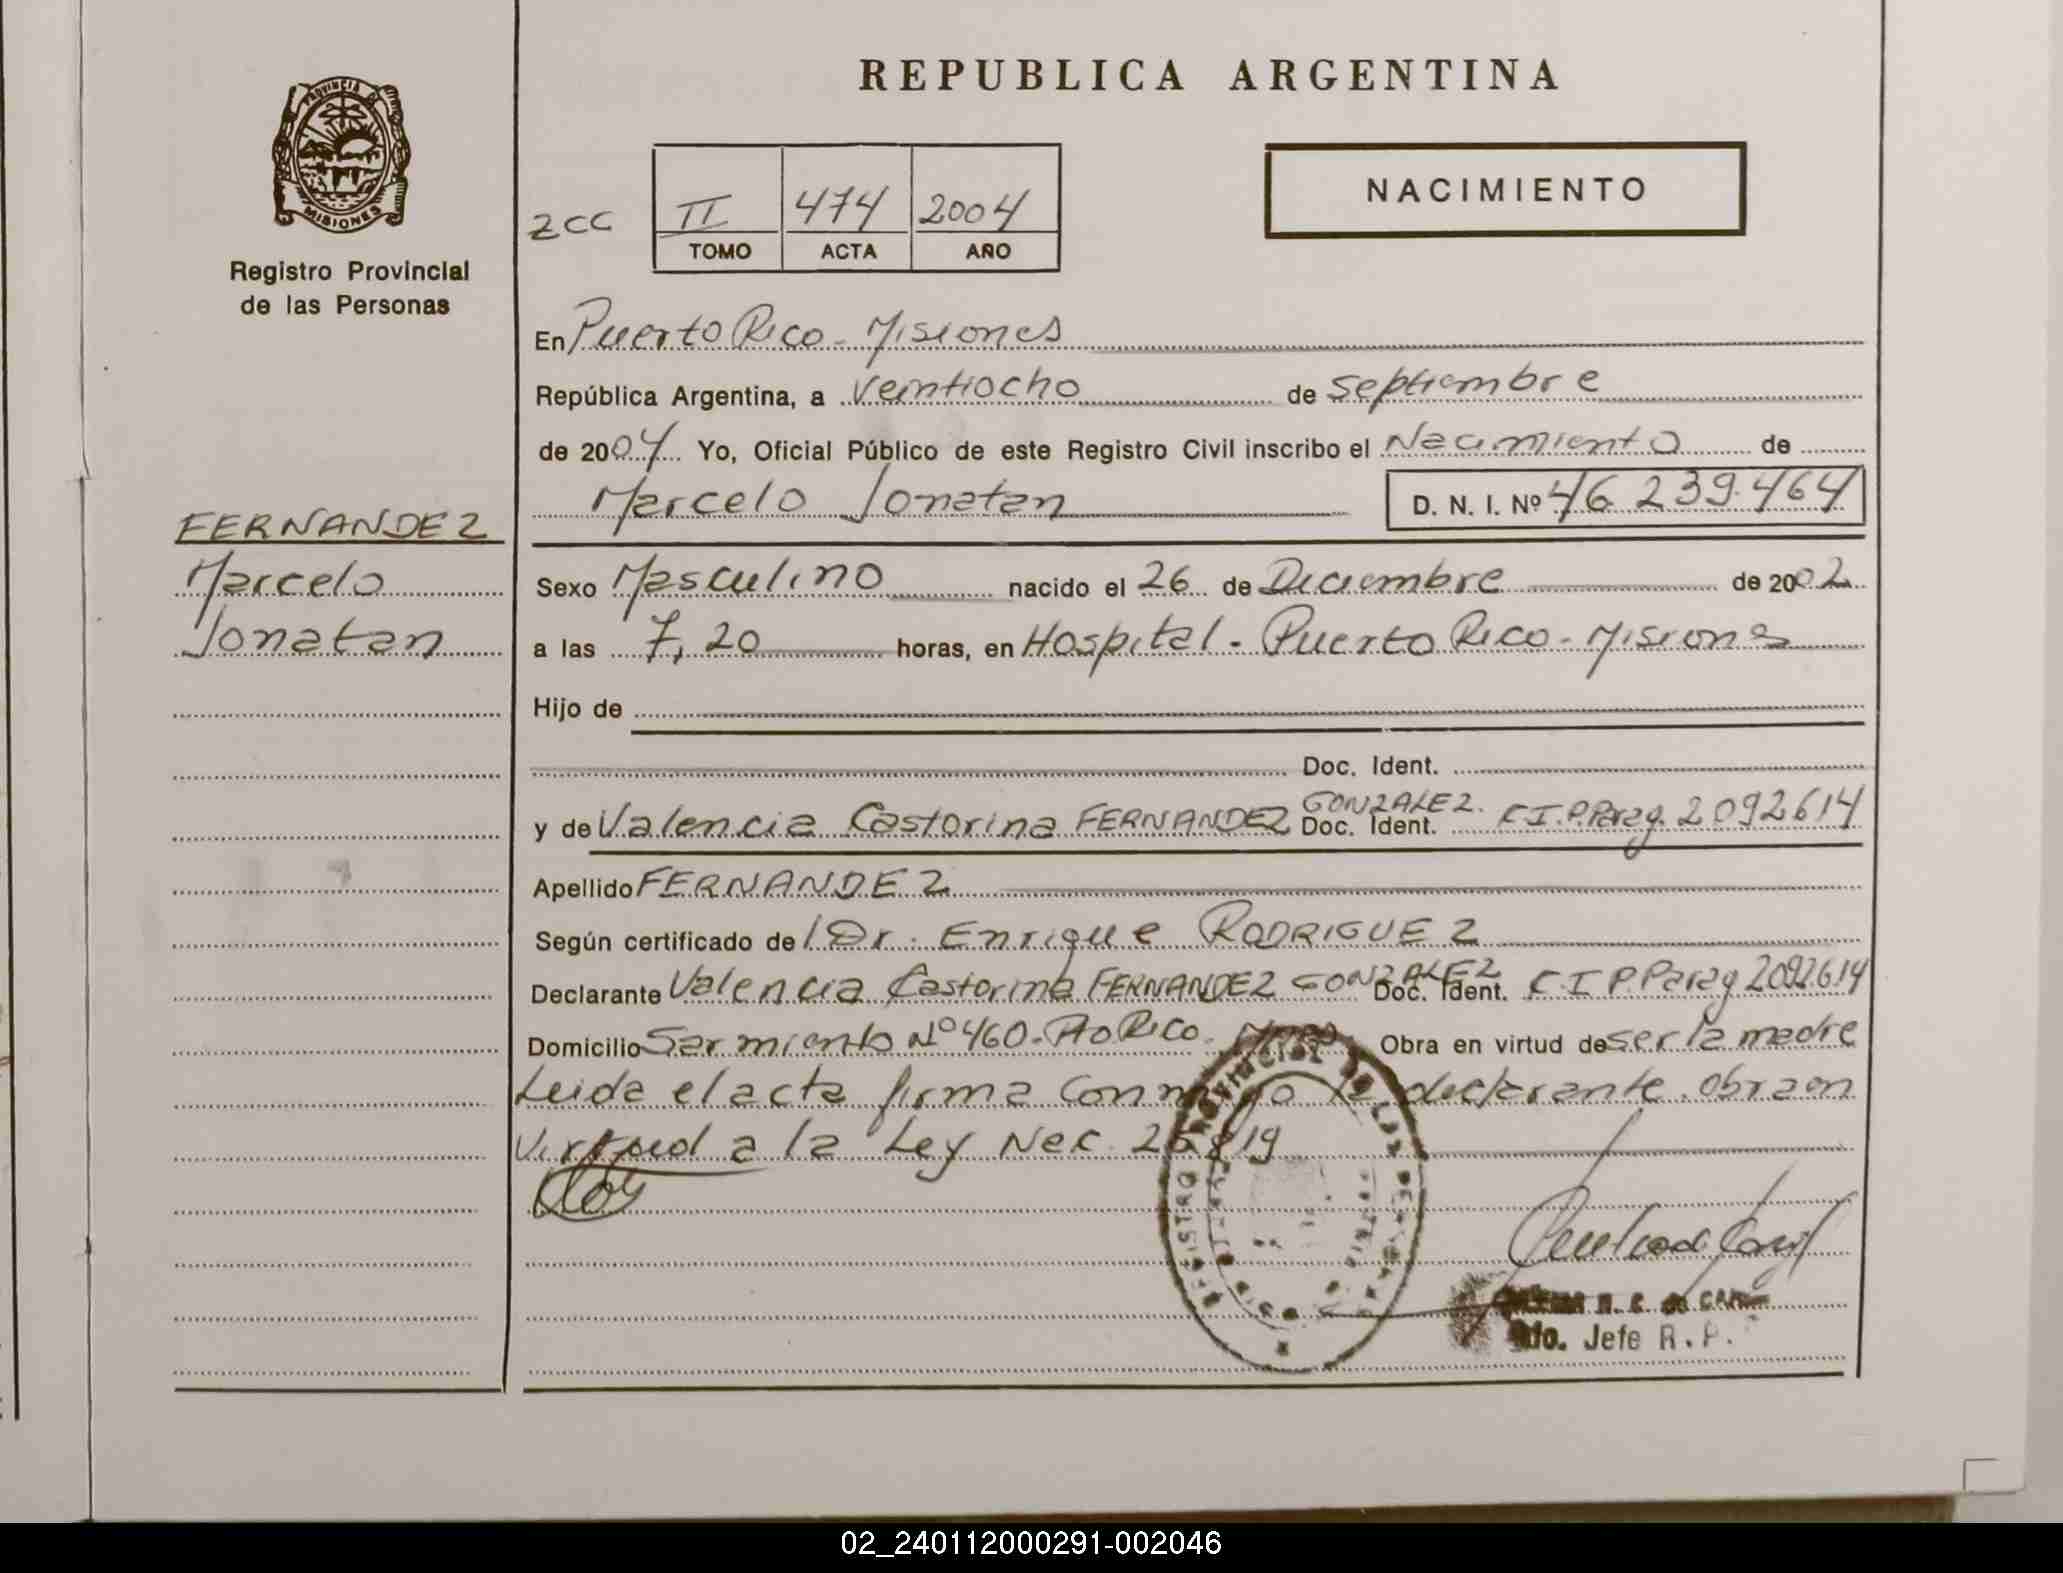 REPUBLICA ARGENTINA
PROVINCIA DE
MISIONES
Registro Provincial
de las Personas
NACIMIENTO
zcc II 474 2004
TOMO ACTA AÑO
En Puerto Rico - Misiones
República Argentina, a veintiocho de septiembre
de 2004 Yo, Oficial Público de este Registro Civil inscribo el Nacimiento de
Marcelo Jonatan D. N. I. Nº 46 239.464
FERNANDEZ
Marcelo
Jonatan
Sexo Masculino nacido el 26 de Diciembre de 2002
a las 7,20 horas, en Hospital - Puerto Rico - Misiones
Hijo de
Doc. Ident.
y de Valencia Castorina FERNANDEZ GONZALEZ Doc. Ident. C.I.P.Parag. 2092614
Apellido FERNANDEZ
Según certificado de Dr. Enrique RODRIGUEZ
Declarante Valencia Castorina FERNANDEZ GONZALEZ Doc. Ident. C.I P.Parag 2092614
Domicilio Sarmiento Nº 460 - Pto Rico. Obra en virtud de ser la madre
Leida el acta firma conmigo la declarante. obra en
virtud a la Ley Nac.
REGISTRO PROVINCIAL DE LAS PERSONAS
Jefe R. P.
02_240112000291-002046